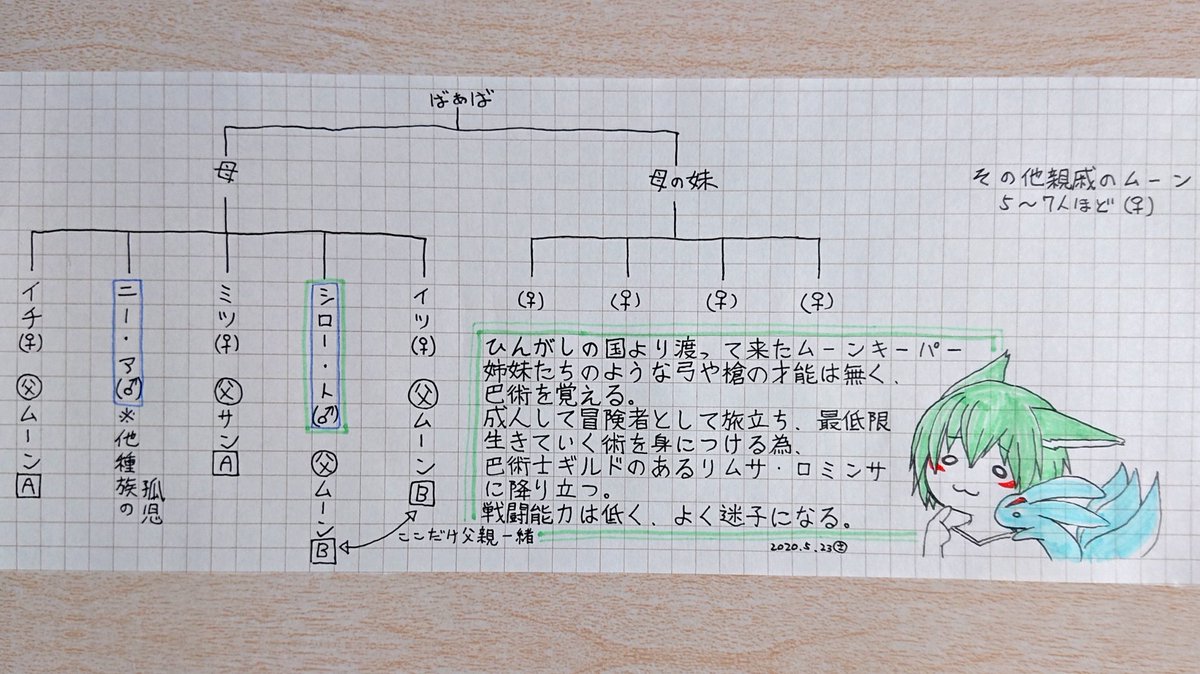 ばぁば
母
母の妹
その他親戚のムーン
5〜7人ほど(♀)
イチ(♀) 父ムーン A
ニー・ア(♂) ※他種族の孤児
ミツ(♀) 父サン A
シロー・ト(♂) 父ムーン B
イツ(♀) 父ムーン B
ここだけ父親一緒
(♀) (♀) (♀) (♀)
ひんがしの国より渡って来たムーンキーパー
姉妹たちのような弓や槍の才能は無く、
巴術を覚える。
成人して冒険者として旅立ち、最低限
生きていく術を身につける為、
巴術士ギルドのあるリムサ・ロミンサ
に降り立つ。
戦闘能力は低く、よく迷子になる。
2020.5.23㊏